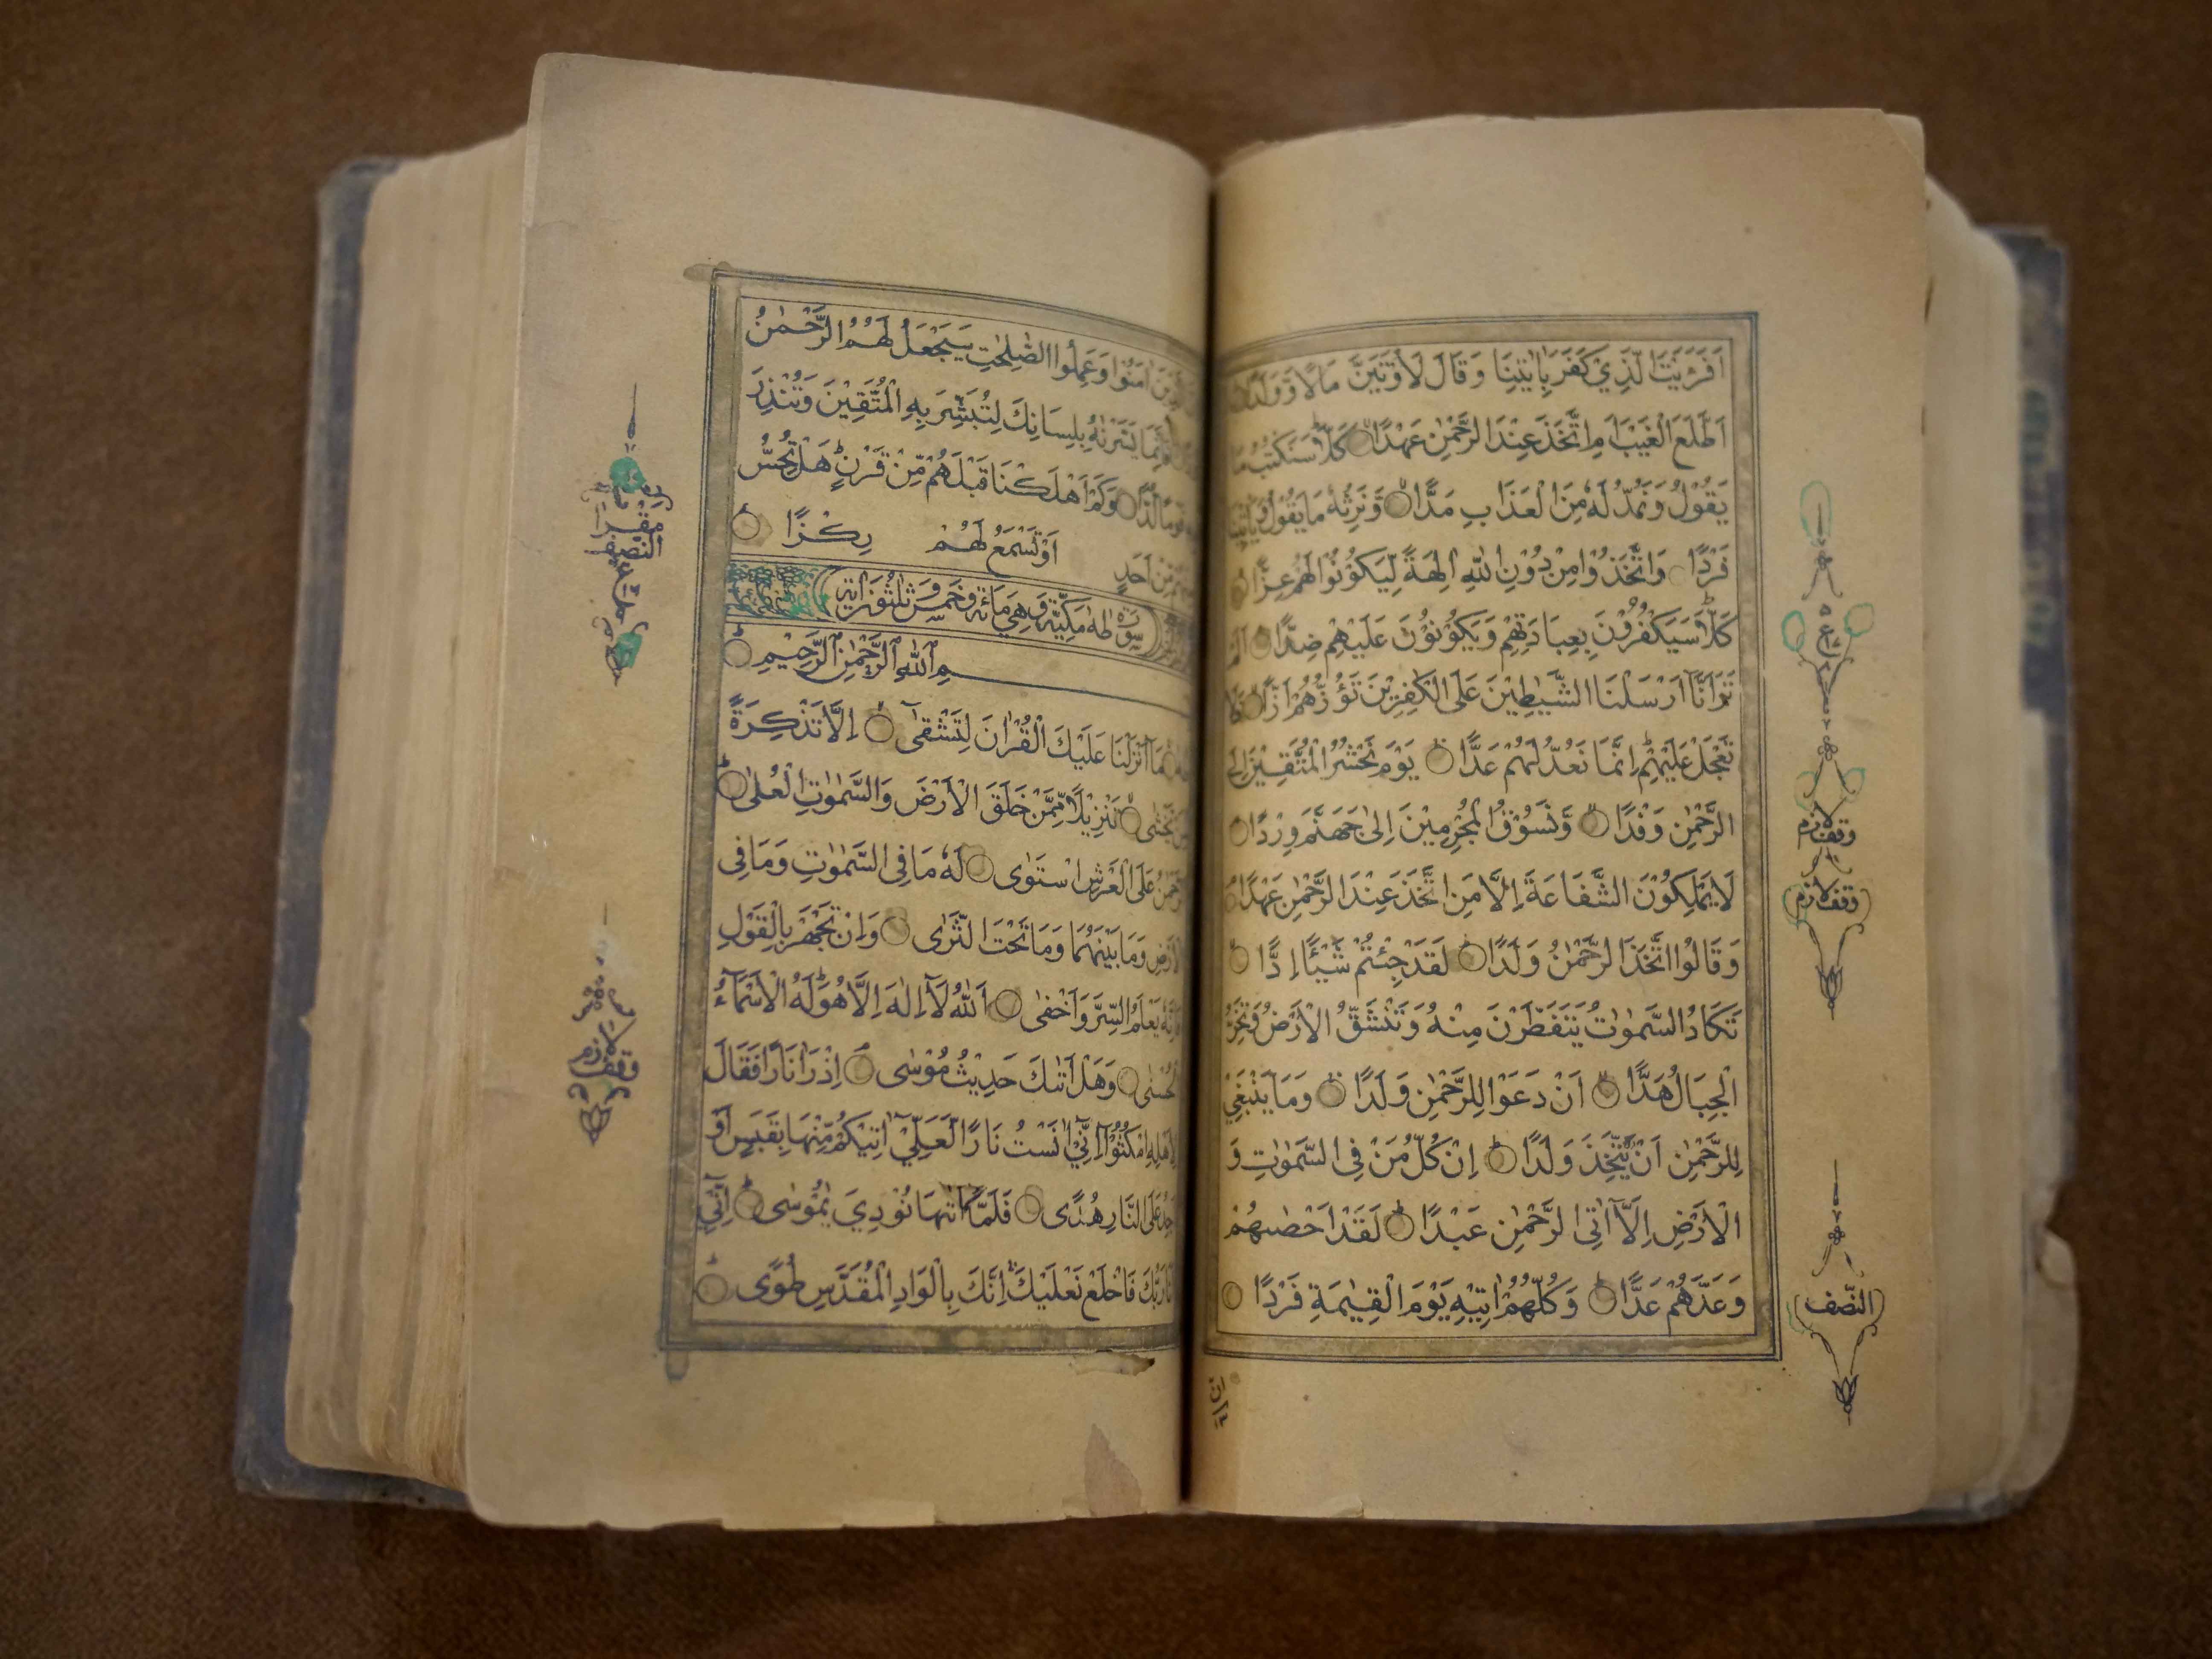 اَفَرَءَيْتَ الَّذِيْ كَفَرَ بِاٰيٰتِنَا وَقَالَ لَاُوْتَيَنَّ مَالًا وَّوَلَدًا
اَطَّلَعَ الْغَيْبَ اَمِ اتَّخَذَ عِنْدَ الرَّحْمٰنِ عَهْدًا كَلَّا سَنَكْتُبُ مَا
يَقُوْلُ وَنَمُدُّ لَهٗ مِنَ الْعَذَابِ مَدًّا وَّنَرِثُهٗ مَا يَقُوْلُ وَيَاْتِيْنَا
فَرْدًا وَاتَّخَذُوْا مِنْ دُوْنِ اللّٰهِ اٰلِهَةً لِّيَكُوْنُوْا لَهُمْ عِزًّا
كَلَّا سَيَكْفُرُوْنَ بِعِبَادَتِهِمْ وَيَكُوْنُوْنَ عَلَيْهِمْ ضِدًّا اَلَمْ
تَرَ اَنَّا اَرْسَلْنَا الشَّيٰطِيْنَ عَلَى الْكٰفِرِيْنَ تَؤُزُّهُمْ اَزًّا فَلَا
تَعْجَلْ عَلَيْهِمْ اِنَّمَا نَعُدُّ لَهُمْ عَدًّا يَوْمَ نَحْشُرُ الْمُتَّقِيْنَ اِلَى
الرَّحْمٰنِ وَفْدًا وَّنَسُوْقُ الْمُجْرِمِيْنَ اِلٰى جَهَنَّمَ وِرْدًا
لَا يَمْلِكُوْنَ الشَّفَاعَةَ اِلَّا مَنِ اتَّخَذَ عِنْدَ الرَّحْمٰنِ عَهْدًا
وَقَالُوا اتَّخَذَ الرَّحْمٰنُ وَلَدًا لَقَدْ جِئْتُمْ شَيْئًا اِدًّا
تَكَادُ السَّمٰوٰتُ يَتَفَطَّرْنَ مِنْهُ وَتَنْشَقُّ الْاَرْضُ وَتَخِرُّ
الْجِبَالُ هَدًّا اَنْ دَعَوْا لِلرَّحْمٰنِ وَلَدًا وَمَا يَنْبَغِيْ
لِلرَّحْمٰنِ اَنْ يَّتَّخِذَ وَلَدًا اِنْ كُلُّ مَنْ فِى السَّمٰوٰتِ وَ
الْاَرْضِ اِلَّا اٰتِى الرَّحْمٰنِ عَبْدًا لَقَدْ اَحْصٰىهُمْ
وَعَدَّهُمْ عَدًّا وَكُلُّهُمْ اٰتِيْهِ يَوْمَ الْقِيٰمَةِ فَرْدًا
ع
وقف لازم
وقف لازم
النّصف
اٰمَنُوْا وَعَمِلُوا الصّٰلِحٰتِ سَيَجْعَلُ لَهُمُ الرَّحْمٰنُ
فَاِنَّمَا يَسَّرْنٰهُ بِلِسَانِكَ لِتُبَشِّرَ بِهِ الْمُتَّقِيْنَ وَتُنْذِرَ
قَوْمًا لُّدًّا وَكَمْ اَهْلَكْنَا قَبْلَهُمْ مِّنْ قَرْنٍ هَلْ تُحِسُّ
مِنْ اَحَدٍ اَوْ تَسْمَعُ لَهُمْ رِكْزًا
سورة طٰهٰ مَكِّيَّةٌ وَهِيَ مِائَةٌ وَخَمْسٌ وَثَلٰثُوْنَ اٰيَة
بِسْمِ اللّٰهِ الرَّحْمٰنِ الرَّحِيْمِ
مَا اَنْزَلْنَا عَلَيْكَ الْقُرْاٰنَ لِتَشْقٰى اِلَّا تَذْكِرَةً
يَّخْشٰى تَنْزِيْلًا مِّمَّنْ خَلَقَ الْاَرْضَ وَالسَّمٰوٰتِ الْعُلٰى
عَلَى الْعَرْشِ اسْتَوٰى لَهٗ مَا فِى السَّمٰوٰتِ وَمَا فِى
الْاَرْضِ وَمَا بَيْنَهُمَا وَمَا تَحْتَ الثَّرٰى وَاِنْ تَجْهَرْ بِالْقَوْلِ
فَاِنَّهٗ يَعْلَمُ السِّرَّ وَاَخْفٰى اَللّٰهُ لَا اِلٰهَ اِلَّا هُوَ لَهُ الْاَسْمَآءُ
الْحُسْنٰى وَهَلْ اَتٰىكَ حَدِيْثُ مُوْسٰى اِذْ رَاٰ نَارًا فَقَالَ
لِاَهْلِهِ امْكُثُوْا اِنِّيْ اٰنَسْتُ نَارًا لَّعَلِّيْ اٰتِيْكُمْ مِّنْهَا بِقَبَسٍ اَوْ
اَجِدُ عَلَى النَّارِ هُدًى فَلَمَّا اَتٰىهَا نُوْدِيَ يٰمُوْسٰى اِنِّيْ
اَنَا رَبُّكَ فَاخْلَعْ نَعْلَيْكَ اِنَّكَ بِالْوَادِ الْمُقَدَّسِ طُوًى
النصف
وقف لازم